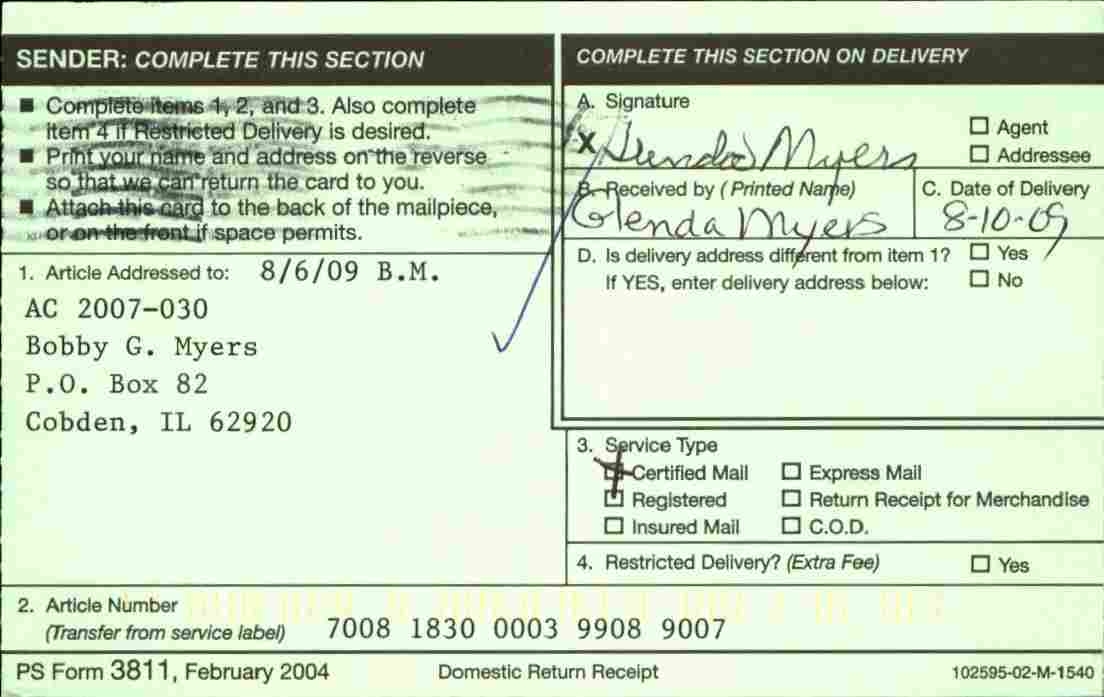 SENDER: COMPLETE THIS SECTION
■ Complete items 1, 2, and 3. Also complete
item 4 if Restricted Delivery is desired.
■ Print your name and address on the reverse
so that we can return the card to you.
■ Attach this card to the back of the mailpiece,
or on the front if space permits.
1. Article Addressed to: 8/6/09 B.M.
AC 2007-030
Bobby G. Myers
P.O. Box 82
Cobden, IL 62920
2. Article Number
(Transfer from service label) 7008 1830 0003 9908 9007
COMPLETE THIS SECTION ON DELIVERY
A. Signature
X Glenda Myers
☐ Agent
☐ Addressee
B. Received by (Printed Name)
Glenda Myers
C. Date of Delivery
8-10-09
D. Is delivery address different from item 1? ☐ Yes
If YES, enter delivery address below: ☐ No
3. Service Type
Certified Mail ☐ Express Mail
☐ Registered ☐ Return Receipt for Merchandise
☐ Insured Mail ☐ C.O.D.
4. Restricted Delivery? (Extra Fee) ☐ Yes
PS Form 3811, February 2004 Domestic Return Receipt 102595-02-M-1540